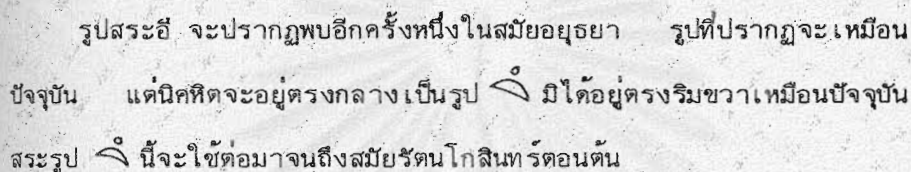 รูปสระอึ จะปรากฏพบอีกครั้งหนึ่งในสมัยอยุธยา รูปที่ปรากฏจะเหมือน
ปัจจุบัน แต่นิคหิตจะอยู่ตรงกลางเป็นรูป มิได้อยู่ตรงริมขวาเหมือนปัจจุบัน
สระรูป นี้จะใช้ต่อมาจนถึงสมัยรัตนโกสินทร์ตอนต้น